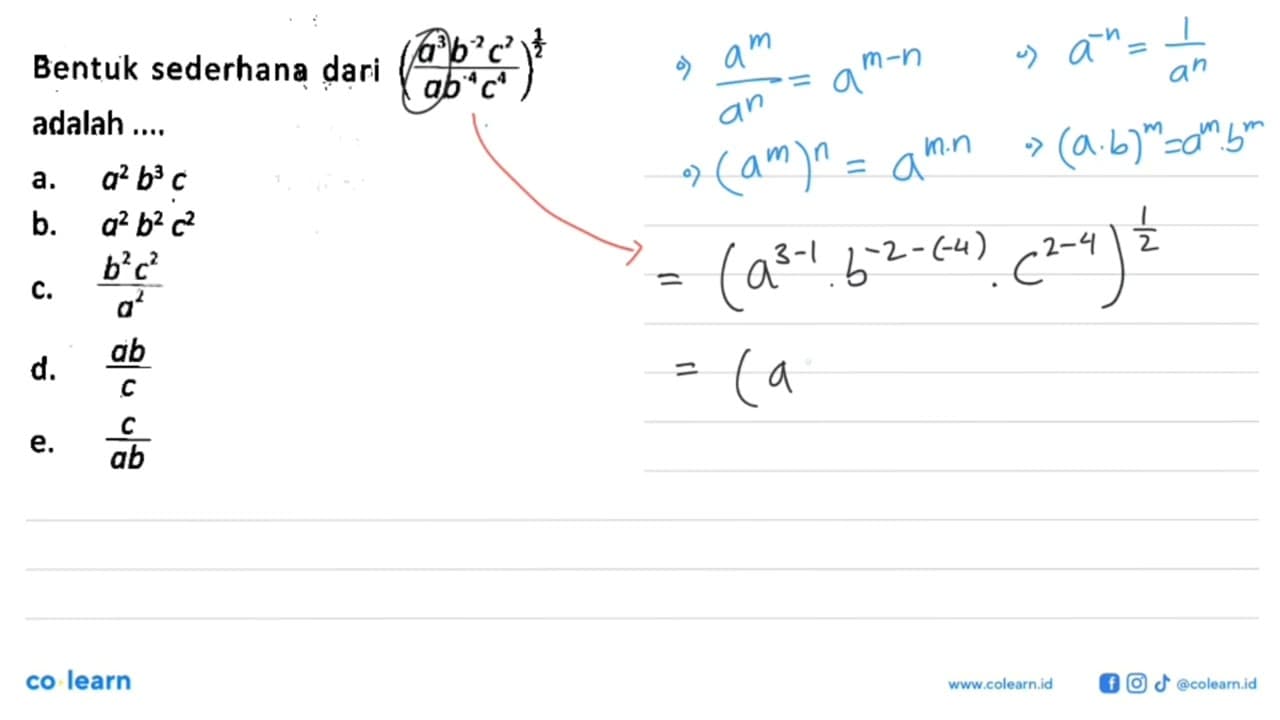 Bentuk sederhana dari (a³b⁻²c²/ab⁻⁴c⁴)^½
adalah ....
a. a² b³ c
b. a² b² c²
c. b²c²/a²
d. ab/c
e. c/ab
•) a^m/a^n = a^(m-n) •) a^-n = 1/a^n
•) (a^m)^n = a^(m.n) •) (a.b)^m = a^m.b^m
= (a^(3-1) . b^(-2-(-4)) . c^(2-4))^(1/2)
= (a
co learn
www.colearn.id @colearn.id